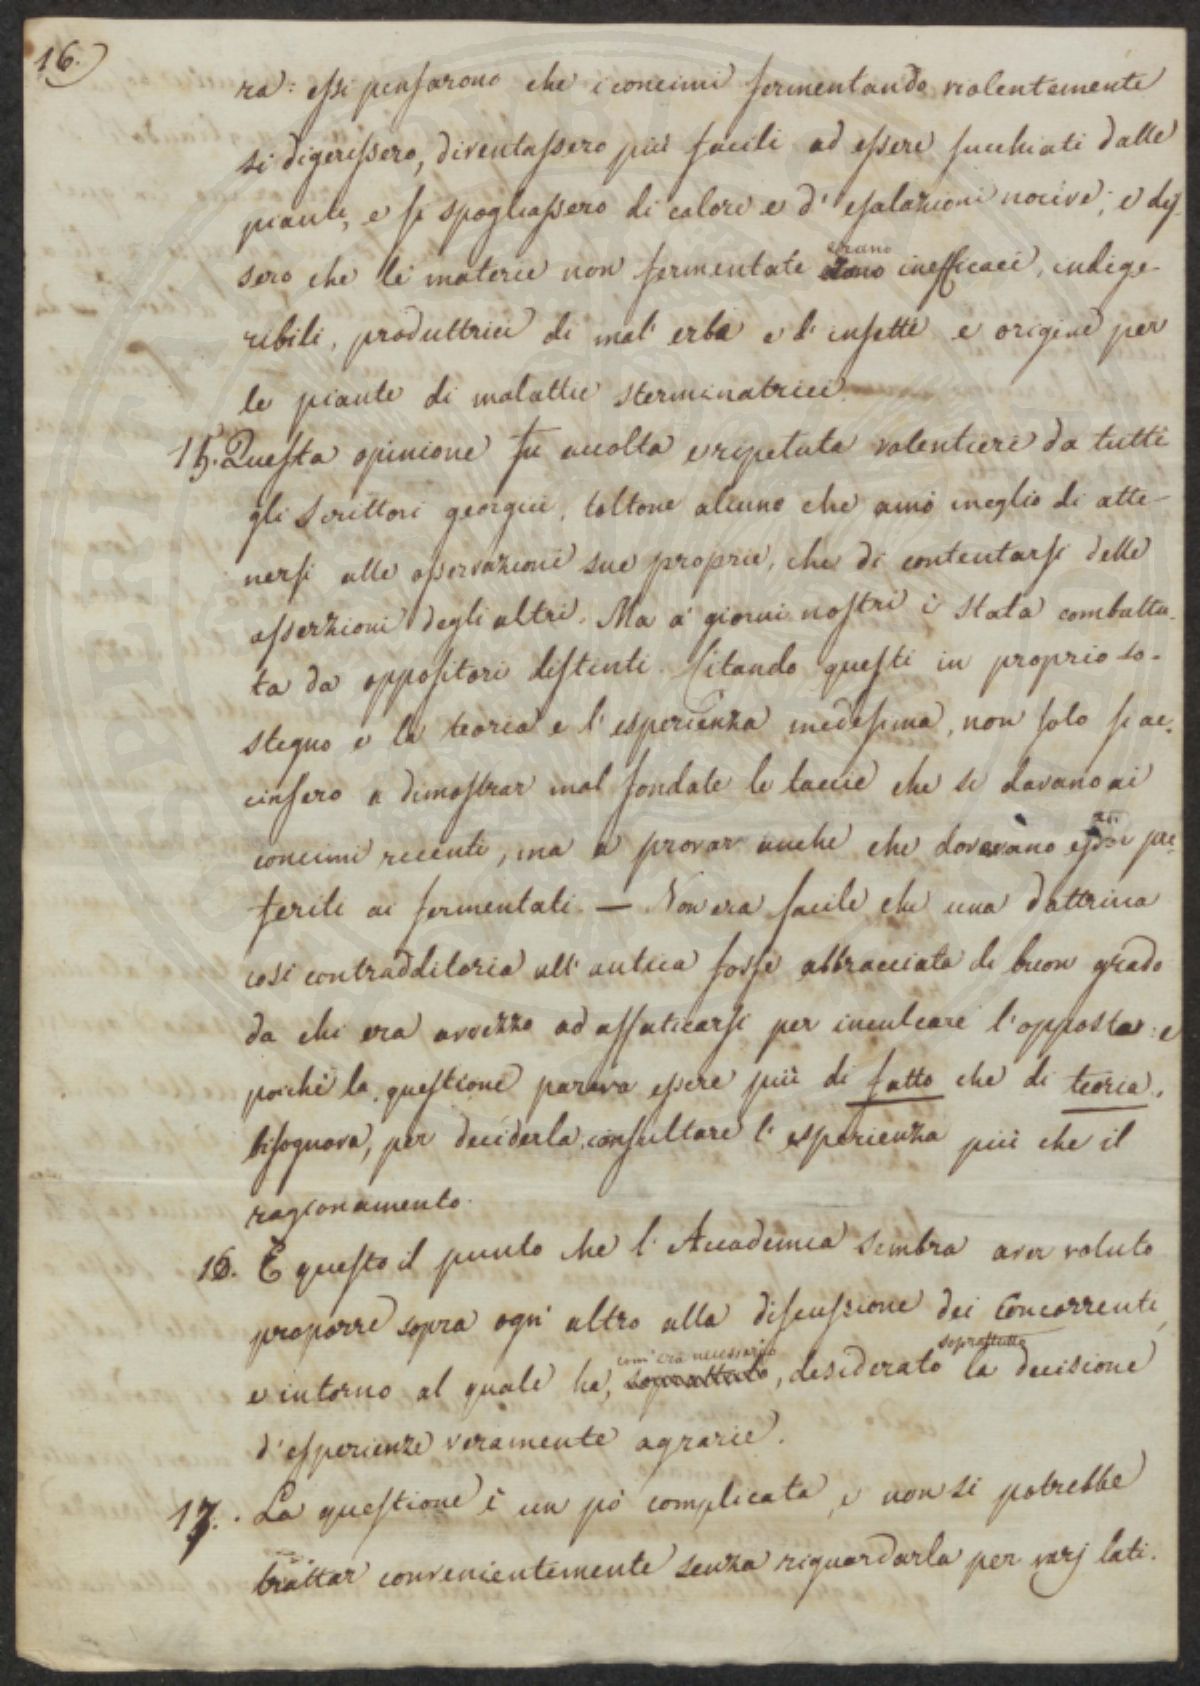 16.
ra: essi pensarono che i concimi fermentando violentemente
si digerissero, diventassero più facili ad essere succhiati dalle
piante, e si spogliassero di calore e d'esalazioni nocive; e dis-
sero che le materie non fermentate erano inefficaci, indige-
ribili, produttrici di mal'erba e d'insetti e origine per
le piante di malattie sterminatrici.
15. Questa opinione fu accolta e ripetuta volentieri da tutti
gli scrittori georgici, toltone alcuno che amò meglio di atte-
nersi alle osservazioni sue proprie, che di contentarsi delle
asserzioni degli altri. Ma a' giorni nostri è stata combattu-
ta da oppositori distinti. Citando questi in proprio so-
stegno e la teoria e l'esperienza medesima, non solo si ac-
cinsero a dimostrar mal fondate le taccie che si davano ai
concimi recenti, ma a provar anche che dovevano esser pre-
feriti ai fermentati. — Non era facile che una dottrina
così contradditoria all'antica fosse abbracciata di buon grado
da chi era avvezzo ad affaticarsi per inculcare l'opposta: e
poichè la questione pareva essere più di fatto che di teoria,
bisognava, per deciderla, consultare l'esperienza più che il
ragionamento.
16. È questo il punto che l'Accademia sembra aver voluto
proporre sopra ogn'altro alla discussione dei Concorrenti,
com'era necessario soprattutto
e intorno al quale ha, soprattutto, desiderato la decisione
d'esperienze veramente agrarie.
17. La questione è un pò complicata, e non si potrebbe
trattar convenientemente senza riguardarla per varj lati.